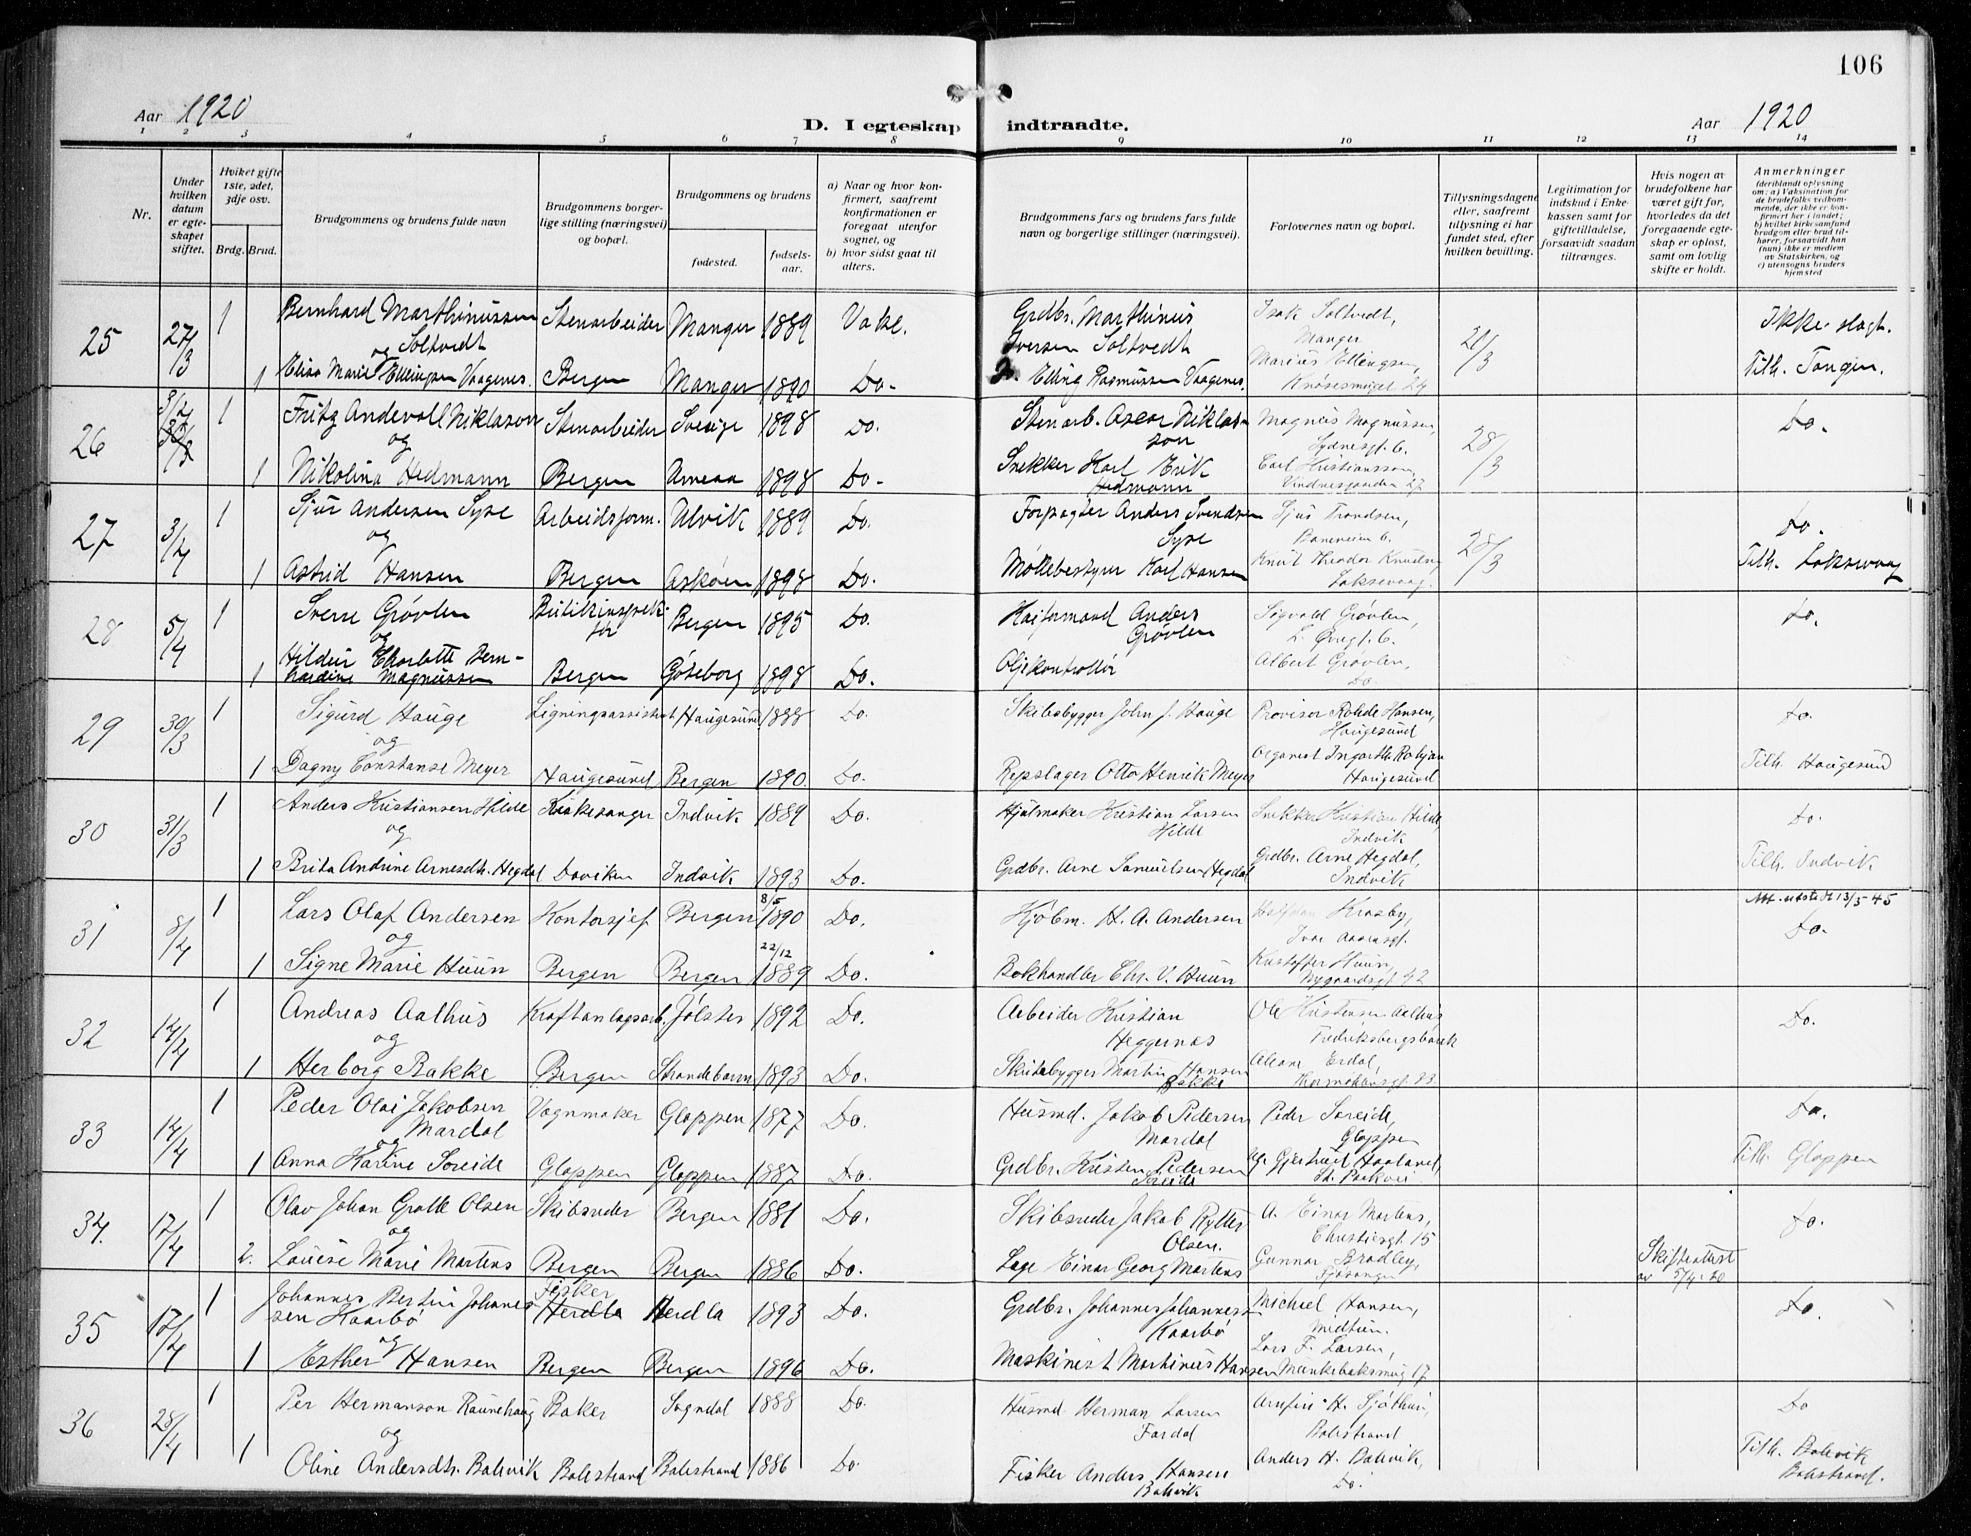 106
Aar 1920
D. I egteskap indtraadte.
Aar 1920
1 2 3 4 5 6 7 8 9 10 11 12 13 14
Nr.
Under hvilken datum er egteskapet stiftet.
Hviket gifte 1ste, 2det, 3dje osv.
Brdg. Brud.
Brudgommens og brudens fulde navn
Brudgommens borgerlige stilling (næringsvei) og bopæl.
Brudgommens og brudens
fødested.
fødselsaar.
a) Naar og hvor konfirmert, saafremt konfirmationen er foregaat utenfor sognet, og
b) hvor sidst gaat til alters.
Brudgommens fars og brudens fars fulde navn og borgerlige stillinger (næringsvei).
Forlovernes navn og bopæl.
Tillysningsdagene eller, saafremt tillysning ei har fundet sted, efter hvilken bevilling.
Legitimation for indskud i Enkekassen samt for giftetilladelse, forsaavidt saadan tiltrænges.
Hvis nogen av brudefolkene har været gift før, hvorledes da det foregaaende egteskap er opløst, samt om lovlig skifte er holdt.
Anmerkninger
(deriblandt oplysning om: a) Vaksination for de brudefolks vedkommende, der ikke er konfirmert her i landet; b) hvilket kirkesamfund brudgom eller brud tilhører, forsaavidt han (hun) ikke er medlem av Statskirken, og c) utensogns bruders hjemsted
25 27/3 1 Bernhard Marthinussen Soltvedt Stenarbeider Manger 1889 Vake. Grdbr. Marthinus Iversen Soltvedt Isak Soltvedt, Manger 21/3 Ikke slagt.
og
1 Elisa Marie Ellingsen Vaagenes. Bergen Manger 1890 Do. Elling Rasmussen Vaagenes. Marius Ellingsen, Knøsesmuget 24 Tilh. Tongin.
26 3/4 1 Fritz Andevall Niklason Stenarbeider Sverige 1898 Do. Stenarb. Oscar Niklasson Magnus Magnussen, Sydnesgt. 6. 28/3 Do.
og
1 Nikolina Hedmann Bergen Umeaa 1898 Do. Snekker Karl Erik Hedmann Carl Kristiansson, Vindnesgaarden 27
27 3/4 1 Sjur Andersen Syse Arbeidsform. Ulvik 1889 Do. Forpagter Anders Svendsen Syse Sjur Trondsen, Baneveien 6. 28/3 Do.
og
1 Astrid Hansen Bergen Askøen 1898 Do. Møllebestyrer Karl Hansen Knut Theodor Knudsen Laksevaag. Tilh. Laksevaag
28 5/4 1 Sverre Grøvlen Butikinspektør Bergen 1895 Do. Kaiformand Anders Grøvlen Sigvald Grøvlen, L. Øvregt. 6. Do.
og
1 Hildur Charlotte Bernhardine Magnussen Bergen Gøteborg 1898 Do. Oljekontrollør Albert Grøvlen, Do.
29 30/3 1 Sigurd Hauge Ligningsassistent Haugesund 1888 Do. Skibsbygger John J. Hauge Provisor Rohde Hansen, Haugesund Do.
og
1 Dagny Constanse Meyer Haugesund Bergen 1890. Do. Repslager Otto Henrik Meyer Organist Haugesund Tilh. Haugesund
30 31/3 1 Anders Kristiansen Hilde Kirkesanger Indvik 1889 Do. Hjulmaker Kristian Larsen Hilde Snekker Kristian Hilde, Indvik Do.
og
1 Brita Andrine Arnesdtr. Hegdal Daviken Indvik 1893 Do. Grdbr. Arne Samuelsen Hegdal Grdbr. Arne Hegdal, Indvik Tilh. Indvik
31 8/4 1 Lars Olaf Andersen Kontorsjef Bergen 8/5 1890 Do. Kjøbm. H. A. Andersen Halfdan Krosby, Ivar Aasensgt. Att. utstedt 13/5-45 Do.
og
1 Signe Marie Huun Bergen Bergen 22/12 1889 Do. Bokhandler Chr. V. Huun Kristoffer Huun, Nygaardsgt 92
32 14/4 1 Andreas Aalhus Kraftanlagsarb. Jølster 1892 Do. Arbeider Kristian Heggernæs Ole Kristensen Aalhus Fredriksbergsbakk Do.
og
1 Herborg Bakke Bergen Strandebarm 1893 Do. Skibsbygger Martin Hansen Bakke Erdal,
33 14/4 1 Peder Olai Jakobsen Mardal Vognmaker Gloppen 1877 Do. Husmd. Jakob Pedersen Mardal Peder Søreide, Gloppen Do.
og
1 Anna Karine Søreide Gloppen Gloppen 1887 Do. Grdbr. Kristen Pedersen Søreide Gjertrud Haaland, St. Parkvei Tilh. Gloppen
34. 17/4 1 Olav Johan Grolle Olsen Skibsreder Bergen 1881 Do. Skibsreder Jakob Rytter Olsen. A. Einar Martens, Christiesgt. 15 Do.
og
2. Louise Marie Martens Bergen Bergen 1886 Do. Læge Einar Georg Martens Gunnar Bradley, Fjøsanger Skifteattest av 5/4-20
35 17/4 1 Johannes Bertin Johannessen Kaarbø Fisker Herdla Herdla 1893 Do. Grdbr. Johannes Johannessen Kaarbø Michael Hansen, Midttun. Do.
og
1 Esther Hansen Bergen Bergen 1896 Do. Maskinist Martinus Hansen Lars F. Larsen, Munkebaksmug 17
36 28/4 1 Per Hermanson Raunehaug Baker Sogndal 1888 Do. Husmd. Herman Larsen Fardal Arnfin H. Sjøthun, Balestrand Do
og
1 Oline Andersdtr. Balevik Balestrand Balestrand 1886 Do. Fisker Anders Hansen Balevik Anders H. Balevik, Do. Tilh. Balevik Balestrand.